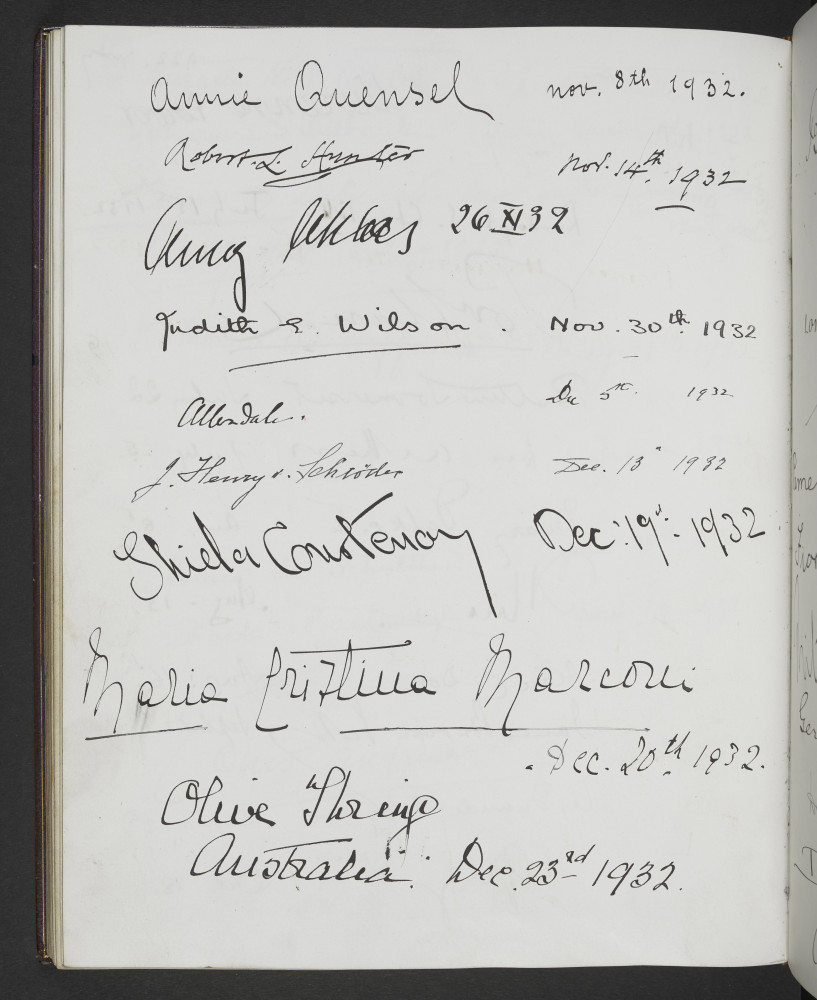 Annie Quensel nov. 8th 1932.
Robert L. Hunter Nov. 14th. 1932
26 XI 32
Judith E. Wilson. Nov. 30th. 1932
Allendale. Dec 5th. 1932
J. Henry v. Schröder Dec. 13" 1932
Shiela Courtenay Dec: 19th: 1932
Maria Cristina Marconi
. Dec. 20th 1932.
Olive Thring
Australia. Dec. 23rd 1932.